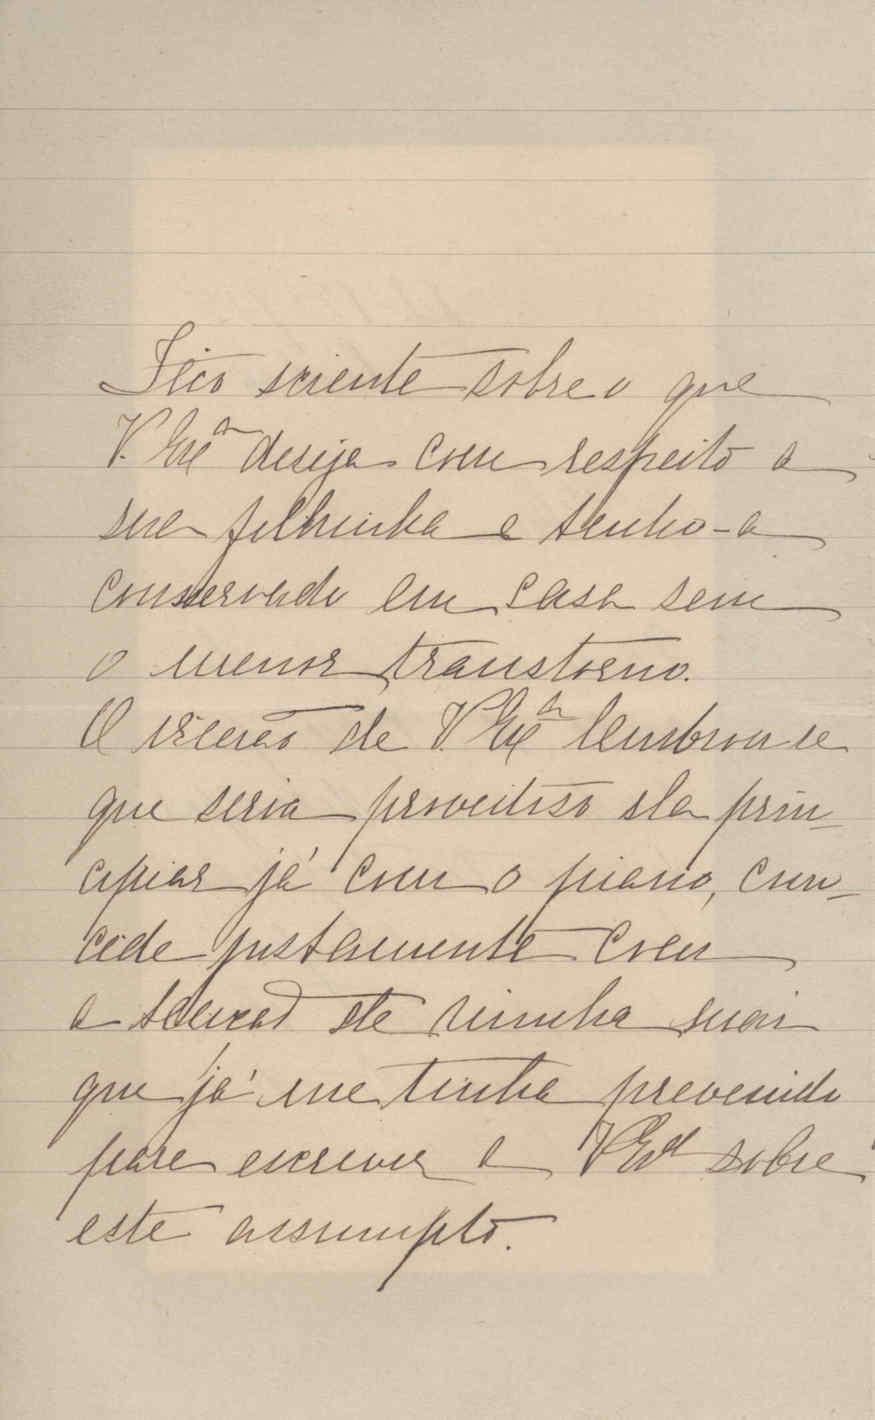 Fico sciente sobre o que
V. Exª deseja com respeito a
sua filhinha e tenho-a
conservado em casa sem
o menor transtorno.
O irmão de V. Exª lembrou-se
que seria proveitoso ela prin-
cipiar já com o piano, coin-
cide justamente com
a tenção de minha mãi
que já me tinha prevenido
para escrever a V Exª sobre
este assumpto.